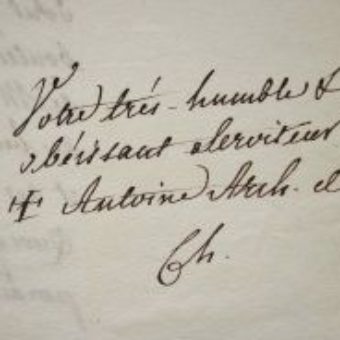 Votre très-humble &
obéissant serviteur
✠ Antoine Arch. d
Ch.